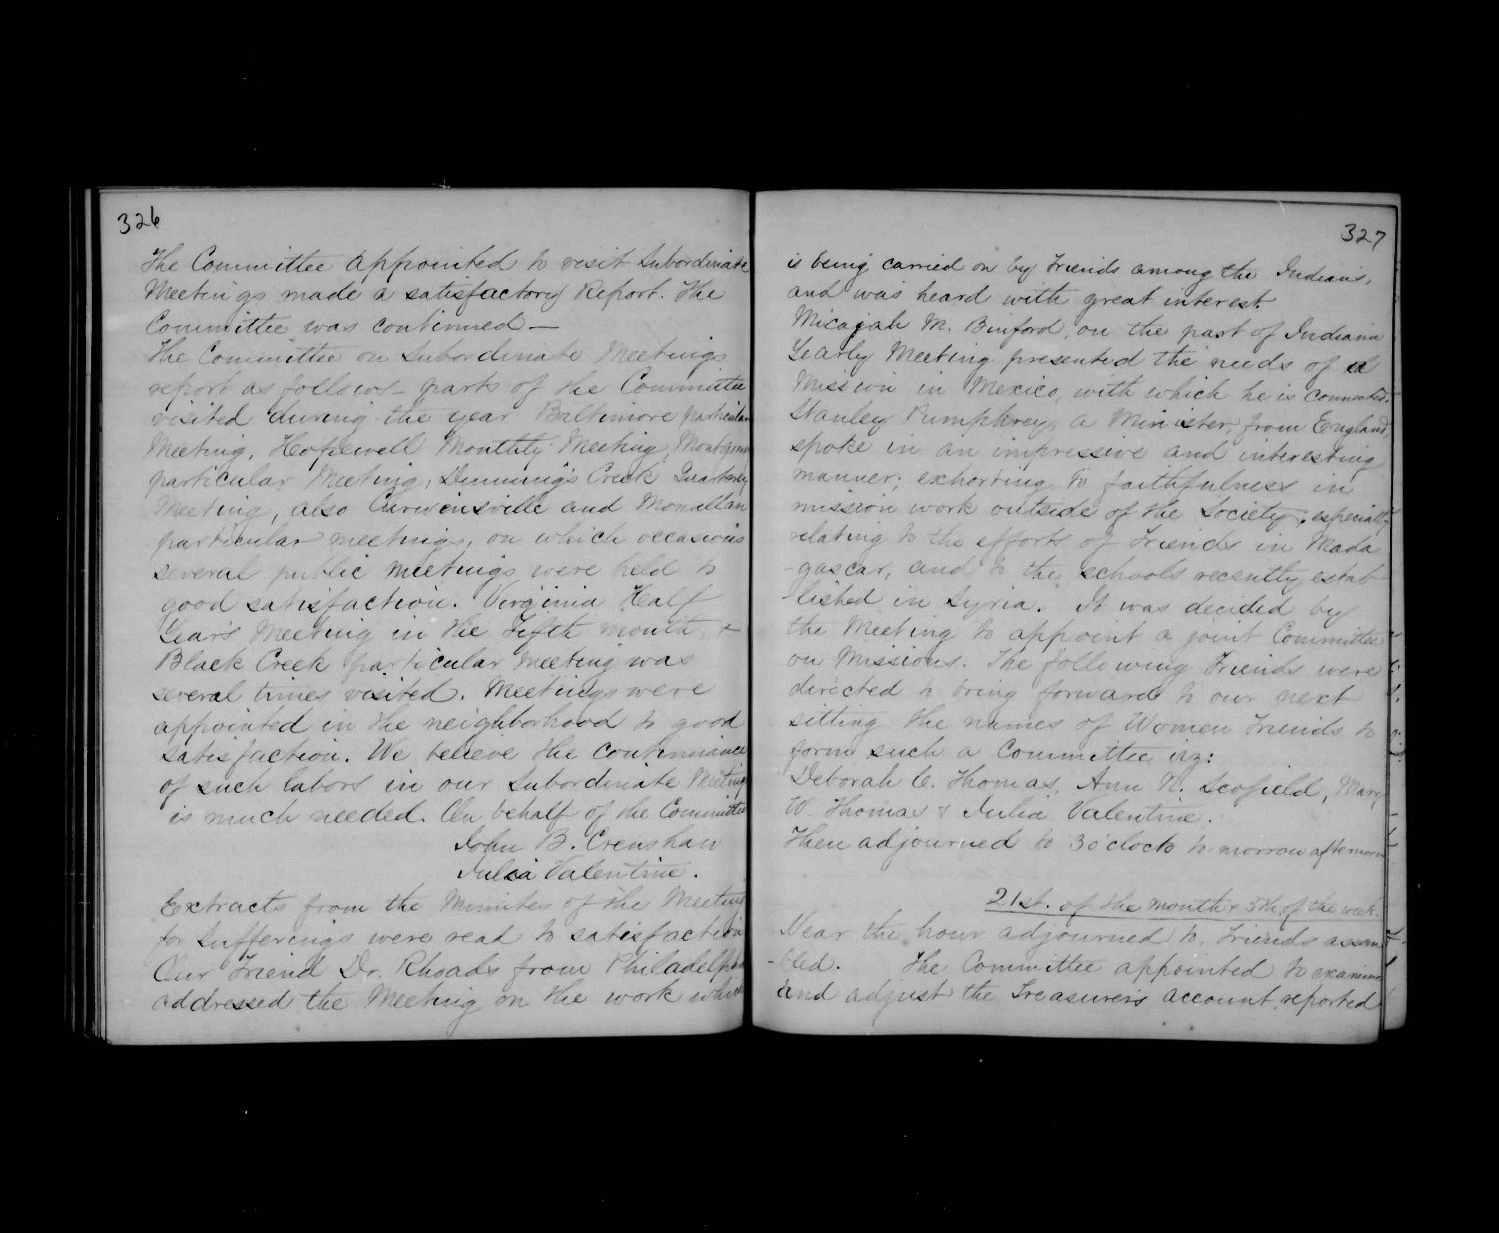 326
The Committee appointed to visit Subordinate
Meetings made a satisfactory Report. The
Committee was continued—
The Committee on Subordinate Meetings
report as follows - parts of the Committee
visited during the year Baltimore particular
Meeting, Hopewell Monthly Meeting,
particular Meeting, Dunning's Creek Quarterly
Meeting, also Curwensville and Monallan
particular meetings, on which occasions
several public meetings were held to
good satisfaction. Virginia Half
Year's Meeting in the Fifth month, &
Black Creek particular Meeting was
several times visited. Meetings were
appointed in the neighborhood to good
satisfaction. We believe the continuance
of such labors in our Subordinate Meetings
is much needed. On behalf of the Committee
John B. Crenshaw
Julia Valentine.
Extracts from the Minutes of the Meeting
for Sufferings were read to satisfaction
Our Friend Dr. Rhoads from Philadelphia
addressed the Meeting on the work which
327
is being carried on by Friends among the Indians,
and was heard with great interest.
Micajah M. Binford, on the part of Indiana
Yearly Meeting presented the needs of a
Mission in Mexico, with which he is connected.
Stanley Pumphrey, a Minister, from England,
spoke in an impressive and interesting
manner; exhorting to faithfulness in
mission work outside of the Society; especially
relating to the efforts of Friends in Mada
-gascar, and to the schools recently estab
-lished in Syria. It was decided by
the Meeting to appoint a joint Committee
on Missions. The following Friends were
directed to bring forward to our next
sitting the names of Women Friends to
form such a Committee, viz:
Deborah C. Thomas, Ann N. Scofield, Mary
W. Thomas & Julia Valentine.
Then adjourned to 3 o'clock to-morrow afternoon
21st. of the month & 5th of the week.
Near the hour adjourned to, Friends assem
-bled. The Committee appointed to examine
and adjust the Treasurer's account, reported